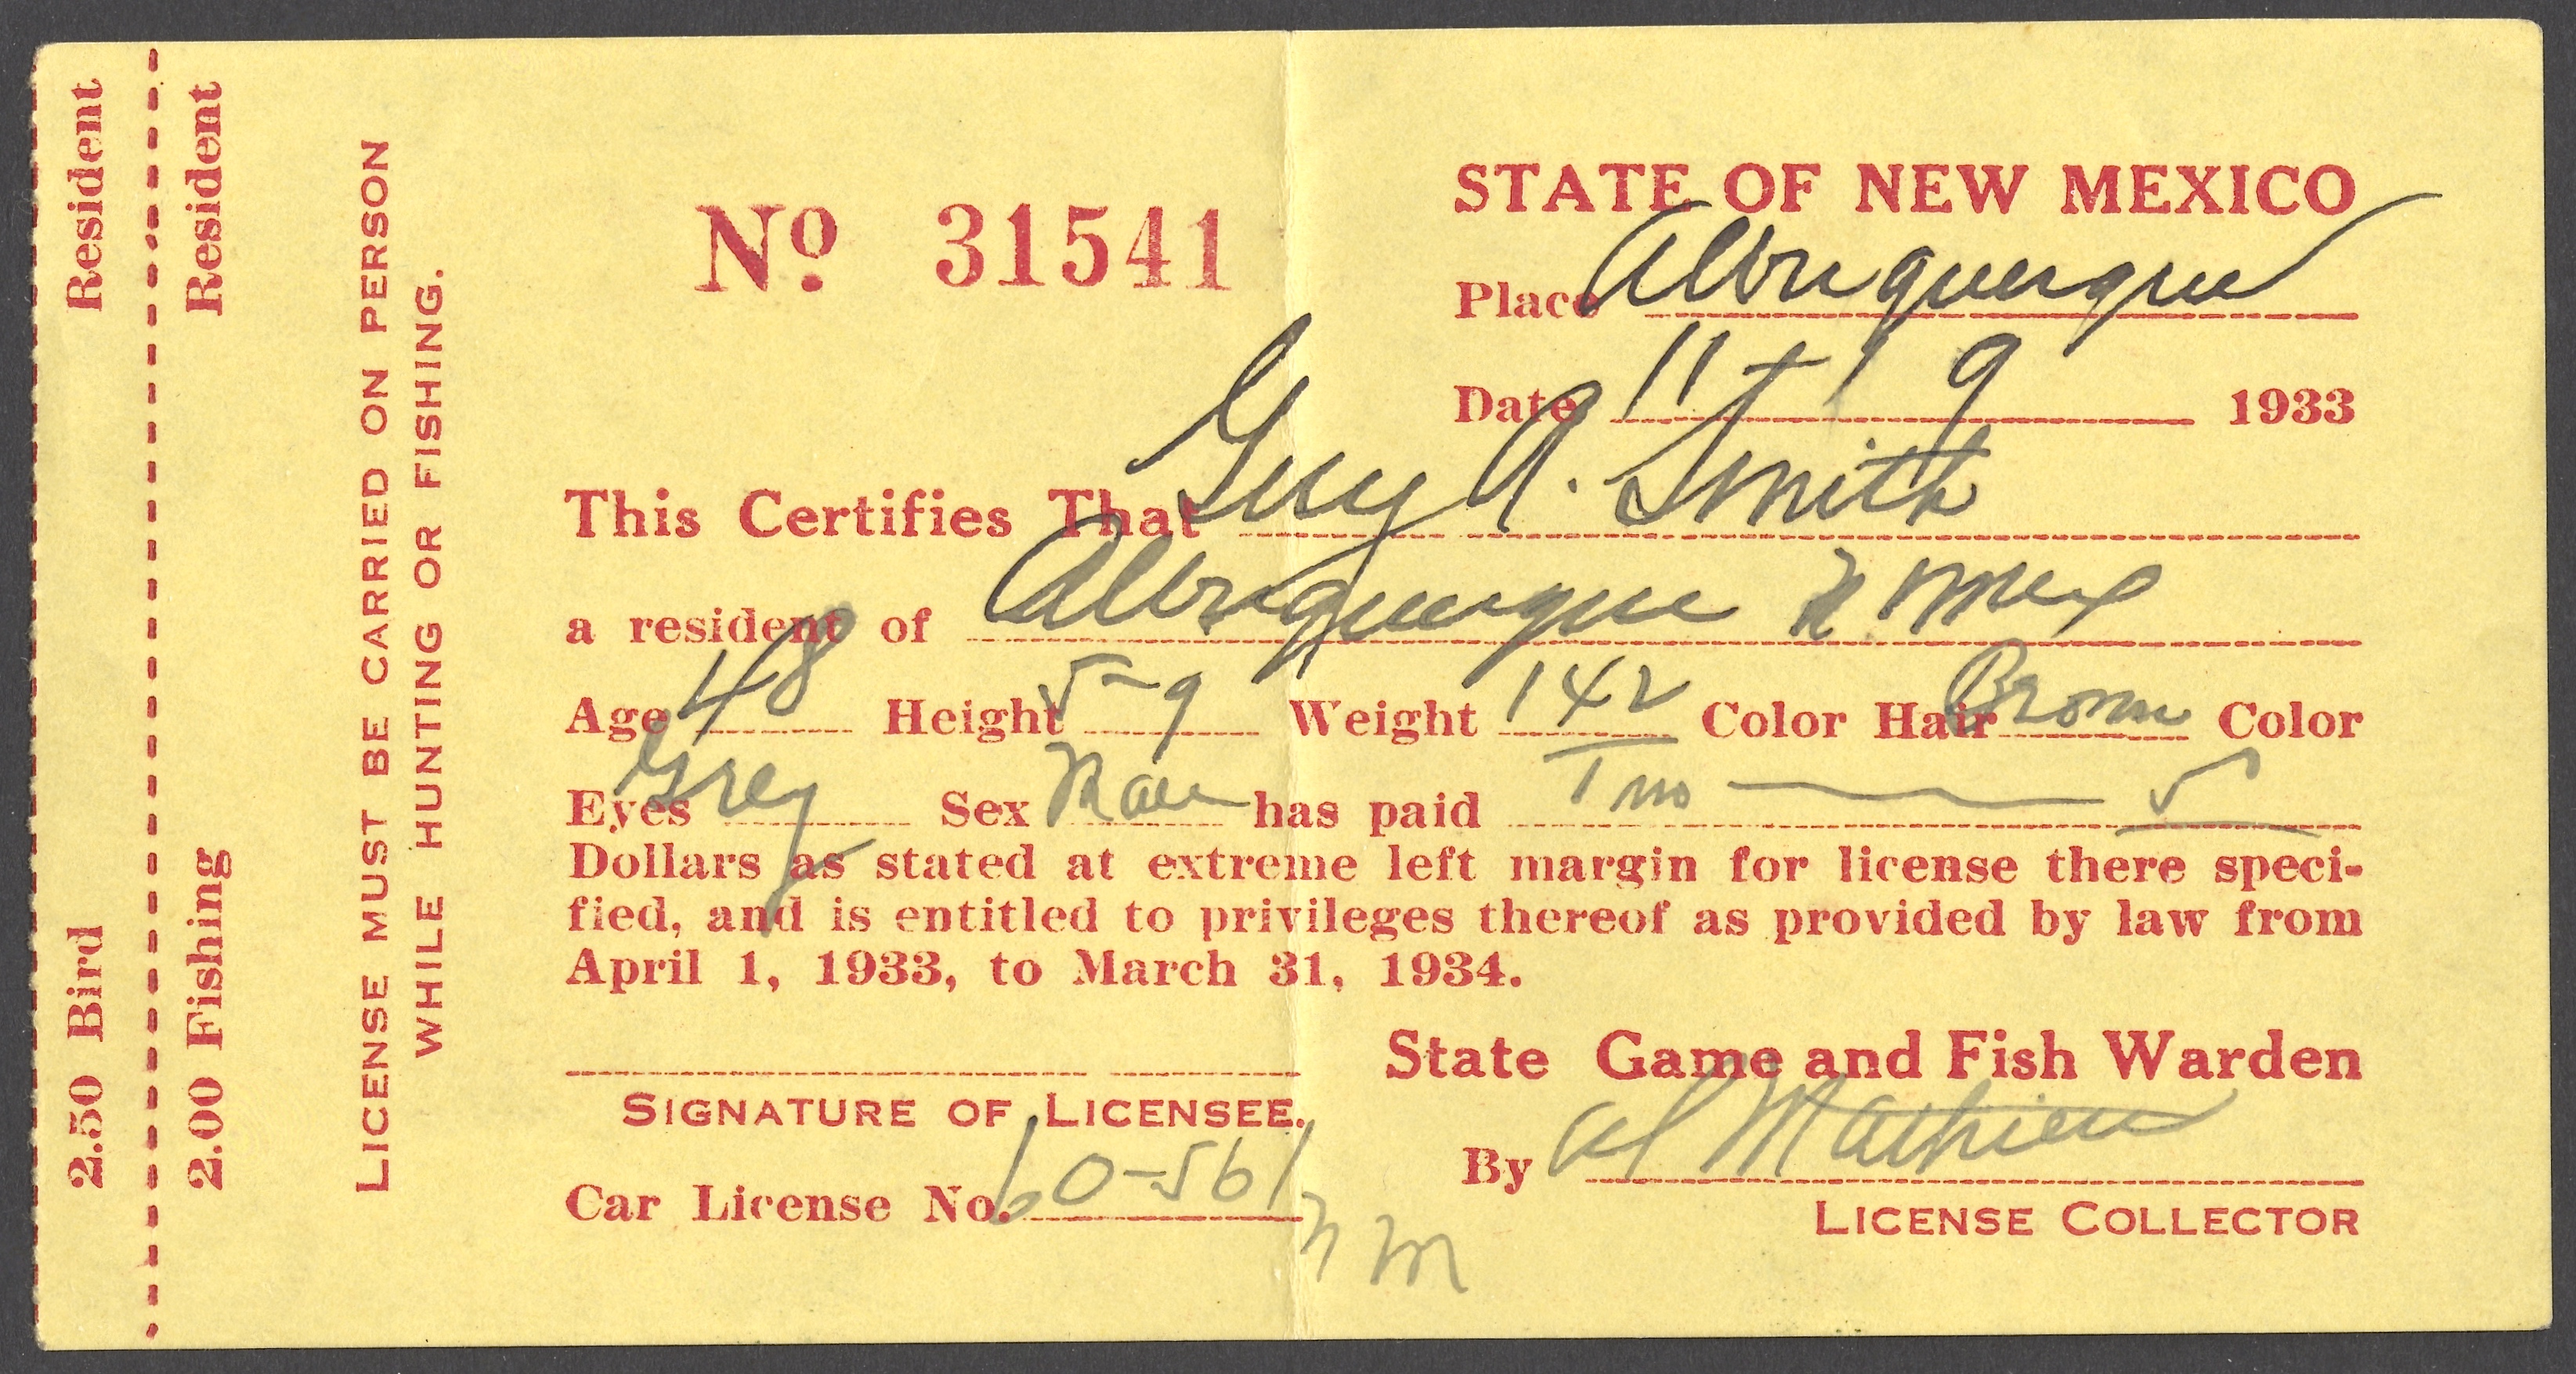 2.50 Bird Resident
2.00 Fishing Resident
LICENSE MUST BE CARRIED ON PERSON
WHILE HUNTING OR FISHING.
No. 31541
STATE OF NEW MEXICO
Place Albuquerque
Date 11 9 1933
This Certifies That Guy A. Smith
a resident of Albuquerque N. Mex
Age 48 Height 5-9 Weight 142 Color Hair Brown Color
Eyes Grey Sex Male has paid Two
Dollars as stated at extreme left margin for license there speci-
fied, and is entitled to privileges thereof as provided by law from
April 1, 1933, to March 31, 1934.
State Game and Fish Warden
SIGNATURE OF LICENSEE.
By Al Mathieu
Car License No. 60-561 NM
LICENSE COLLECTOR